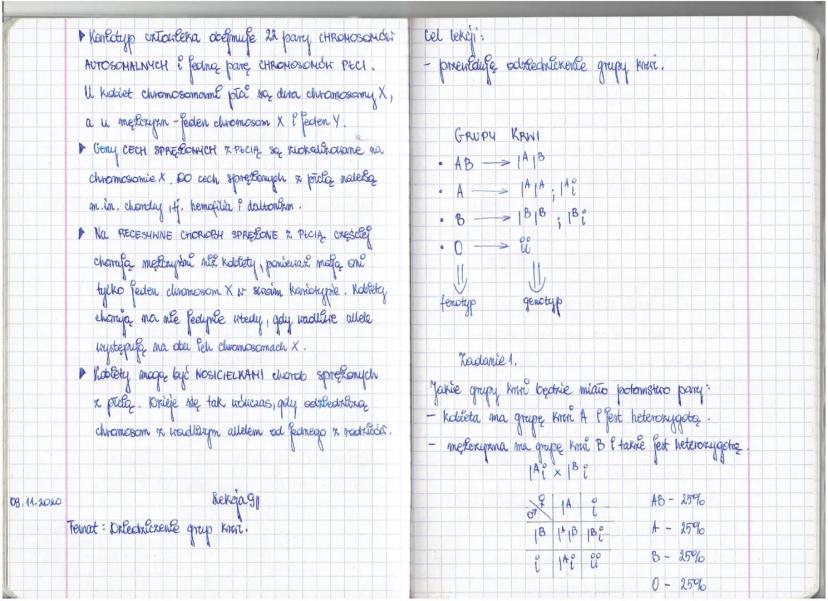 ▸ Kariotyp człowieka obejmuje 22 pary CHROMOSOMÓW
AUTOSOMALNYCH i jedną parę CHROMOSOMÓW PŁCI.
U kobiet chromosomami płci są dwa chromosomy X,
a u mężczyzn - jeden chromosom X i jeden Y.
▸ Geny CECH SPRZĘŻONYCH Z PŁCIĄ są zlokalizowane na
chromosomie X. DO cech sprzężonych z płcią należą
m.in. choroby, tj. hemofilia i daltonizm.
▸ Na RECESYWNE CHOROBY SPRZĘŻONE Z PŁCIĄ CZĘŚCIEJ
chorują mężczyźni niż kobiety, ponieważ mają oni
tylko jeden chromosom X w swoim kariotypie. Kobiety
chorują na nie jedynie wtedy, gdy wadliwe allele
występują na obu ich chromosomach X.
▸ Kobiety mogą być NOSICIELKAMI chorób sprzężonych
z płcią. Dzieje się tak wówczas, gdy odziedziczą
chromosom z wadliwym allelem od jednego z rodziców.
09.11.2020
Lekcja 9
Temat: Dziedziczenie grup krwi.
Cel lekcji:
- przewiduję odziedziczenie grupy krwi.
GRUPY KRWI
• AB → I^A I^B
• A → I^A I^A ; I^A i
• B → I^B I^B ; I^B i
• O → ii
⇓ ⇓
fenotyp genotyp
Zadanie 1.
Jakie grupy krwi będzie miało potomstwo pary:
- kobieta ma grupę krwi A i jest heterozygotą.
- mężczyzna ma grupę krwi B i także jest heterozygotą.
I^A i × I^B i
♂ ♀ I^A i
I^B I^A I^B I^B i
i I^A i ii
AB - 25%
A - 25%
B - 25%
O - 25%